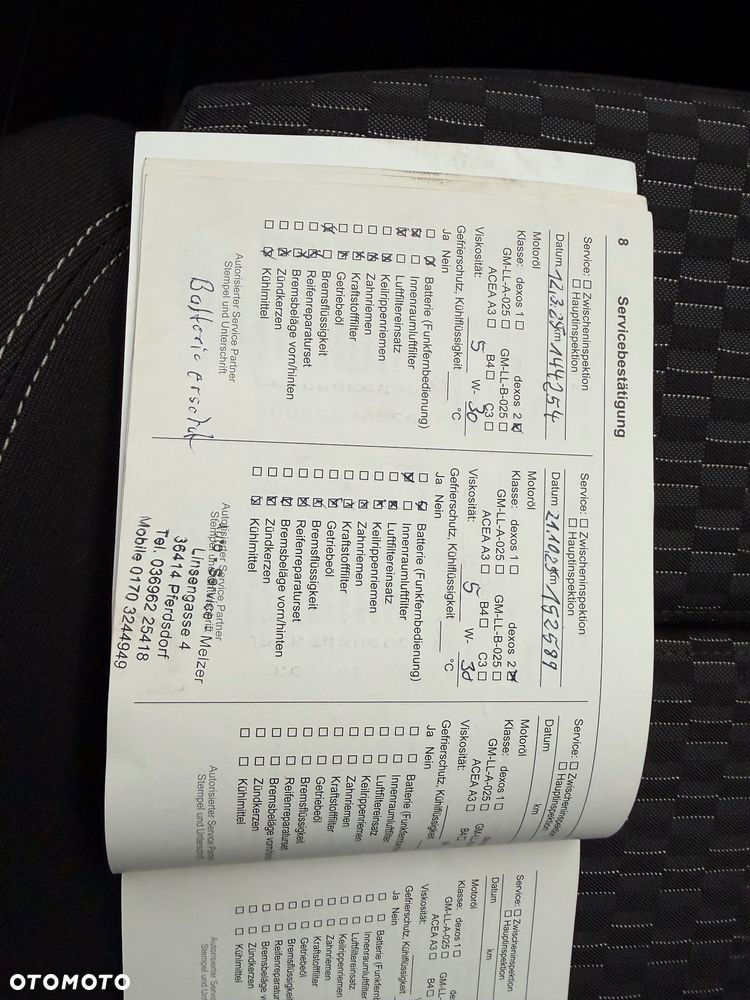 8 Servicebestätigung
Service: ☐ Zwischeninspektion
☐ Hauptinspektion
Datum 12.3.25 km 144254
Motoröl
Klasse: dexos 1 ☐ dexos 2 ☒
GM-LL-A-025 ☐ GM-LL-B-025 ☐
ACEA A3 ☐ B4 ☐ C3 ☐
Viskosität: 5 W- 30
Gefrierschutz, Kühlflüssigkeit °C
Ja Nein
☐ ☒ Batterie (Funkfernbedienung)
☒ ☐ Innenraumluftfilter
☒ ☐ Luftfiltereinsatz
☐ ☒ Keilrippenriemen
☐ ☒ Zahnriemen
☐ ☒ Kraftstofffilter
☐ ☒ Getriebeöl
☒ ☐ Bremsflüssigkeit
☐ ☒ Reifenreparaturset
☐ ☒ Bremsbeläge vorn/hinten
☐ ☒ Zündkerzen
☐ ☒ Kühlmittel
Autorisierter Service Partner
Stempel und Unterschrift
Batterie
Service: ☐ Zwischeninspektion
☐ Hauptinspektion
Datum 21.10.25 km 152589
Motoröl
Klasse: dexos 1 ☐ dexos 2 ☒
GM-LL-A-025 ☐ GM-LL-B-025 ☐
ACEA A3 ☐ B4 ☐ C3 ☐
Viskosität: 5 W- 30
Gefrierschutz, Kühlflüssigkeit °C
Ja Nein
☐ ☒ Batterie (Funkfernbedienung)
☒ ☐ Innenraumluftfilter
☐ ☒ Luftfiltereinsatz
☐ ☒ Keilrippenriemen
☐ ☒ Zahnriemen
☐ ☒ Kraftstofffilter
☐ ☒ Getriebeöl
☐ ☒ Bremsflüssigkeit
☐ ☒ Reifenreparaturset
☐ ☒ Bremsbeläge vorn/hinten
☐ ☒ Zündkerzen
☐ ☒ Kühlmittel
Autorisierter Service Partner
Stempel und Unterschrift
Service Melzer
Linsengasse 4
36414 Pferdsdorf
Tel. 036962 25418
Mobile 0170 3244949
Service: ☐ Zwischeninspektion
☐ Hauptinspektion
Datum km
Motoröl
Klasse: dexos 1 ☐
GM-LL-A-025 ☐ GM-
ACEA A3 ☐ B4 ☐
Viskosität:
Gefrierschutz, Kühlflüssigkeit
Ja Nein
☐ ☐ Batterie (Funkfern
☐ ☐ Innenraumluftfilter
☐ ☐ Luftfiltereinsatz
☐ ☐ Keilrippenriemen
☐ ☐ Zahnriemen
☐ ☐ Kraftstofffilter
☐ ☐ Getriebeöl
☐ ☐ Bremsflüssigkeit
☐ ☐ Reifenreparaturset
☐ ☐ Bremsbeläge vorn/hinten
☐ ☐ Zündkerzen
☐ ☐ Kühlmittel
Autorisierter Service Partner
Stempel und Unterschrift
Service: ☐ Zwischeninspektion
☐ Hauptinspektion
Datum km
Motoröl
Klasse: dexos 1 ☐
GM-LL-A-025 ☐ GM-L
ACEA A3 ☐ B4
Viskosität:
Gefrierschutz, Kühlflüssigkeit
Ja Nein
☐ ☐ Batterie (Funkfern
☐ ☐ Innenraumluftfilter
☐ ☐ Luftfiltereinsatz
☐ ☐ Keilrippenriemen
☐ ☐ Zahnriemen
☐ ☐ Kraftstofffilter
☐ ☐ Getriebeöl
☐ ☐ Bremsflüssigkeit
☐ ☐ Reifenreparatur
☐ ☐ Bremsbeläge vor
☐ ☐ Zündkerzen
☐ ☐ Kühlmittel
Autorisierter Service
Stempel und
OTOMOTO